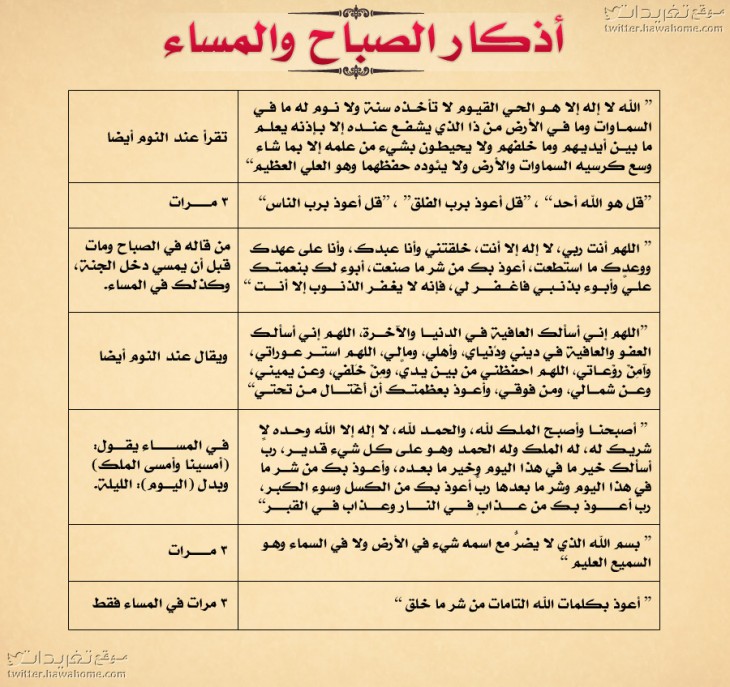 موقع تغريدات
twitter.hawahome.com
أذكار الصباح والمساء
” الله لا إله إلا هو الحي القيوم لا تأخذه سنة ولا نوم له ما في
السماوات وما في الأرض من ذا الذي يشفع عنده إلا بإذنه يعلم
ما بين أيديهم وما خلفهم ولا يحيطون بشيء من علمه إلا بما شاء
وسع كرسيه السماوات والأرض ولا يئوده حفظهما وهو العلي العظيم“
تقرأ عند النوم أيضا
”قل هو الله أحد“ ، ”قل أعوذ برب الفلق“ ، ”قل أعوذ برب الناس“
٣ مـــرات
” اللهم أنت ربي، لا إله إلا أنت، خلقتني وأنا عبدك، وأنا على عهدك
ووعدك ما استطعت، أعوذ بك من شر ما صنعت، أبوء لك بنعمتك
علي وأبوء بذنبي فاغفر لي، فإنه لا يغفر الذنوب إلا أنت “
من قاله في الصباح ومات
قبل أن يمسي دخل الجنة،
وكذلك في المساء.
”اللهم إني أسألك العافية في الدنيا والآخرة، اللهم إني أسألك
العفو والعافية في ديني ودنياي، وأهلي، ومالي، اللهم استر عوراتي،
وآمن روعاتي، اللهم احفظني من بين يدي، ومن خلفي، وعن يميني،
وعن شمالي، ومن فوقي، وأعوذ بعظمتك أن أغتال من تحتي“
ويقال عند النوم أيضا
” أصبحنا وأصبح الملك لله، والحمد لله، لا إله إلا الله وحده لا
شريك له، له الملك وله الحمد وهو على كل شيء قدير، رب
أسألك خير ما في هذا اليوم وخير ما بعده، وأعوذ بك من شر ما
في هذا اليوم وشر ما بعدها رب أعوذ بك من الكسل وسوء الكبر،
رب أعوذ بك من عذاب في النار وعذاب في القبر“
في المساء يقول:
(أمسينا وأمسى الملك)
وبدل (اليوم): الليلة.
” بسم الله الذي لا يضرُ مع اسمه شيء في الأرض ولا في السماء وهو
السميع العليم “
٣ مـــرات
” أعوذ بكلمات الله التامات من شر ما خلق “
٣ مرات في المساء فقط
موقع تغريدات
twitter.hawahome.com